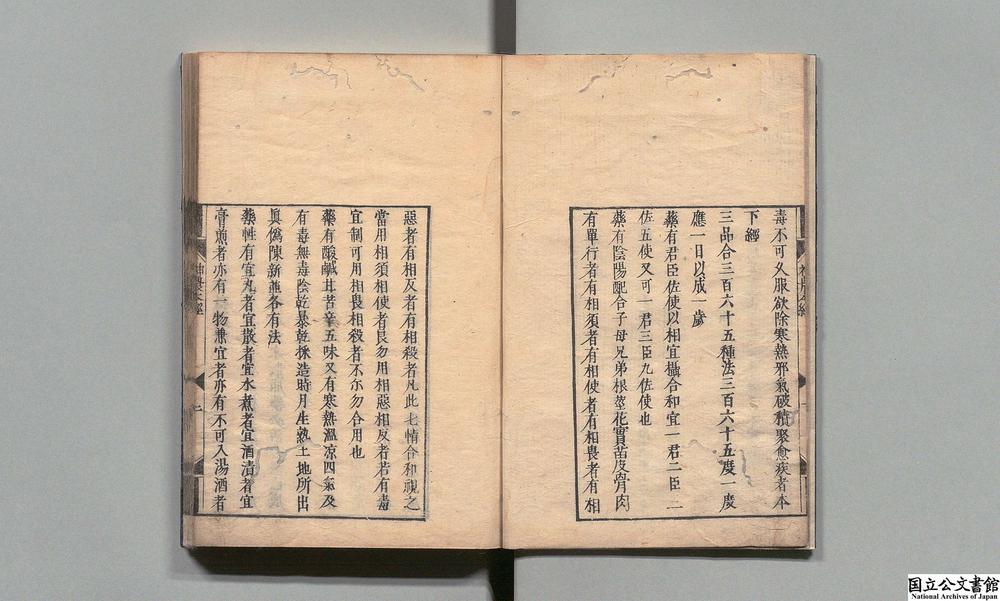 毒不可久服欲除寒熱邪氣破積聚愈疾者本
下經
三品合三百六十五種法三百六十五度一度
應一日以成一歲
藥有君臣佐使以相宜攝合和宜一君二臣二
佐五使又可一君三臣九佐使也
藥有陰陽配合子母兄弟根莖花實苗皮骨肉
有單行者有相須者有相使者有相畏者有相
惡者有相反者有相殺者凡此七情合和視之
當用相須相使者良勿用相惡相反者若有毒
宜制可用相畏相殺者不尔勿合用也
藥有酸鹹甘苦辛五味又有寒熱溫凉四氣及
有毒無毒陰乾暴乾採造時月生熟土地所出
眞僞陳新並各有法
藥性有宜丸者宜散者宜水煮者宜酒漬者宜
膏煎者亦有一物兼宜者亦有不可入湯酒者
神農本經
国立公文書館
National Archives of Japan